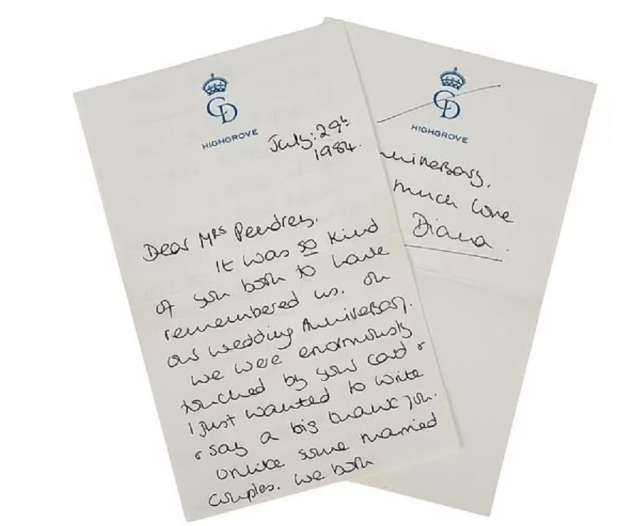 CD
HIGHGROVE
July: 29th
1984.
Dear Mrs Pendrey,
It was so kind
of you both to have
remembered us on
our wedding Anniversary.
we were enormously
touched by your card &
I just wanted to write
& say a big thank you.
unlike some married
couples, we both
CD
HIGHGROVE
nniversary.
much love
Diana.